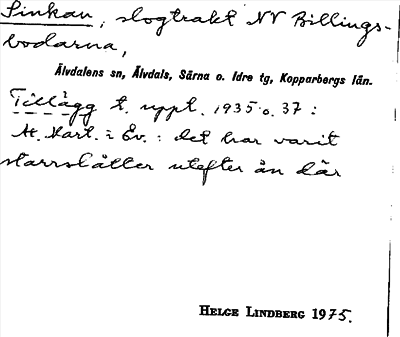 Sinkan, slogtrakt NV Billings-
bodarna,
Älvdalens sn, Älvdals, Särna o. Idre tg, Kopparbergs län.
Tillägg t. uppt. 1935 o. 37 :
At. Kart. i Äv. : det har varit
starrslåtter utefter ån där
HELGE LINDBERG 1975.